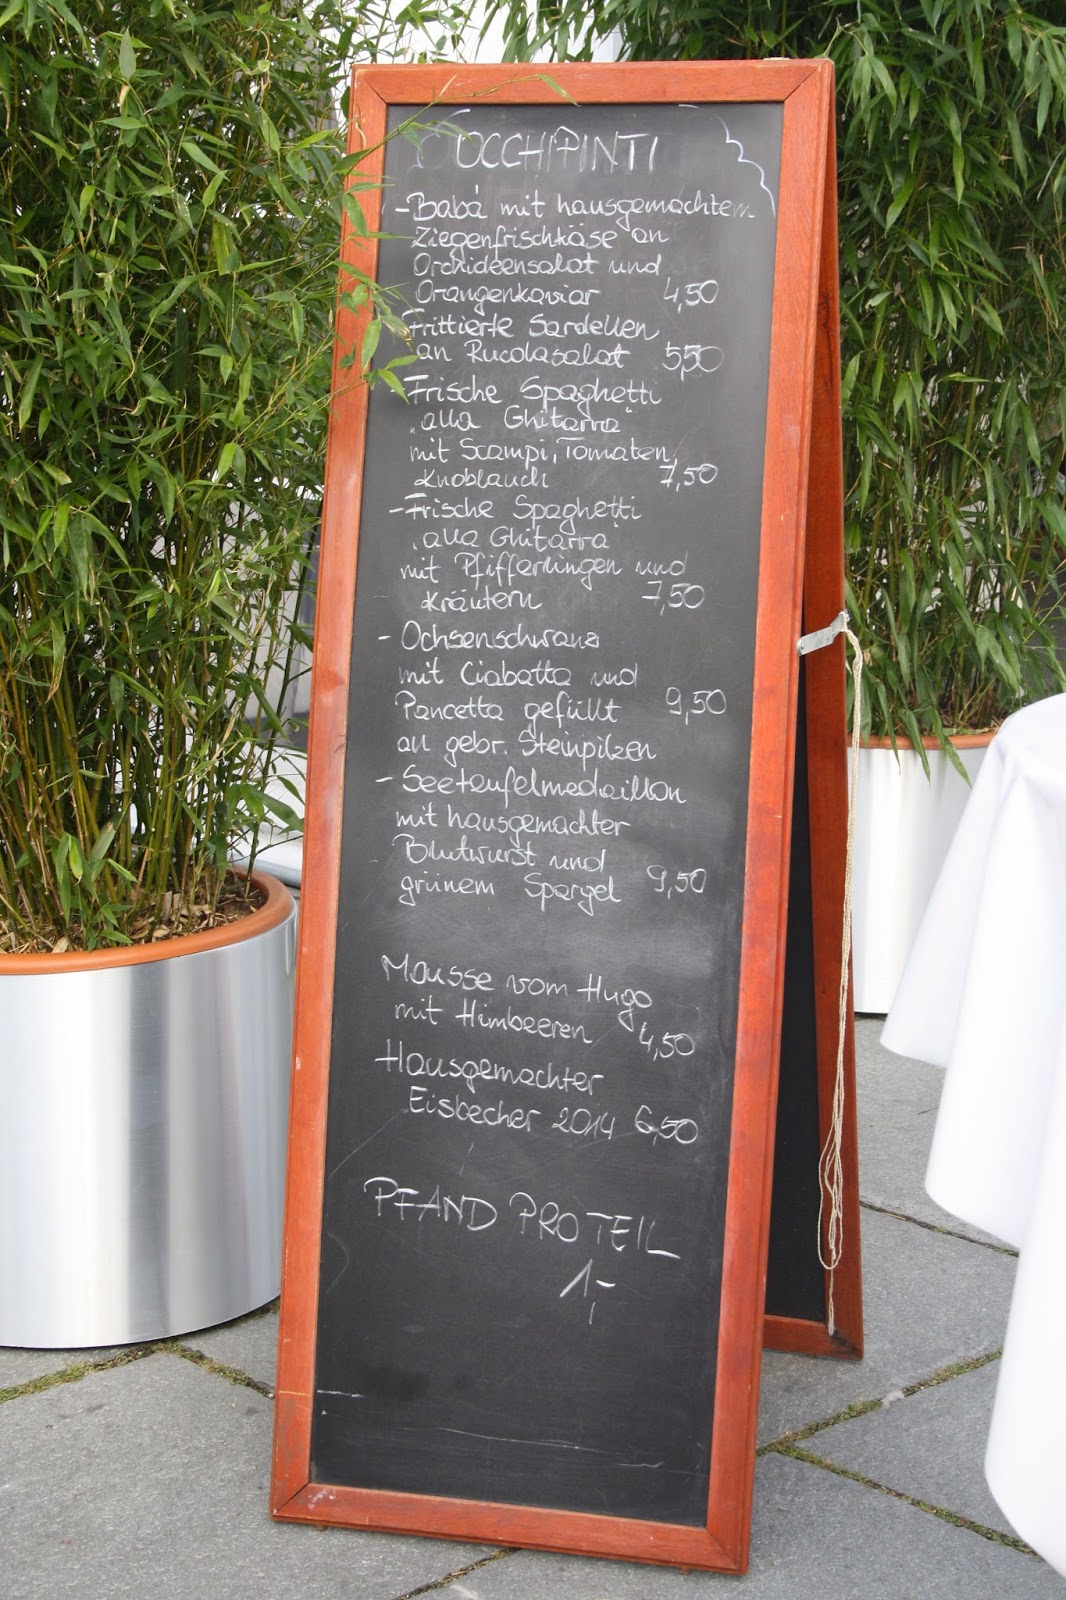 OCCHIPINTI
- Babà mit hausgemachtem
Ziegenfrischkäse an
Orchideensalat und
Orangenkaviar 4,50
Frittierte Sardellen
an Rucolasalat 5,50
- Frische Spaghetti
"alla Ghitarra"
mit Scampi, Tomaten,
Knoblauch 7,50
- Frische Spaghetti
"alla Ghitarra
mit Pfifferlingen und
Kräutern 7,50
- Ochsenschwanz
mit Ciabatta und
Pancetta gefüllt 9,50
an gebr. Steinpilzen
- Seeteufelmedaillon
mit hausgemachter
Blutwurst und
grünem Spargel 9,50
Mousse vom Hugo
mit Himbeeren 4,50
Hausgemachter
Eisbecher 2014 6,50
PFAND PRO TEIL
1,-